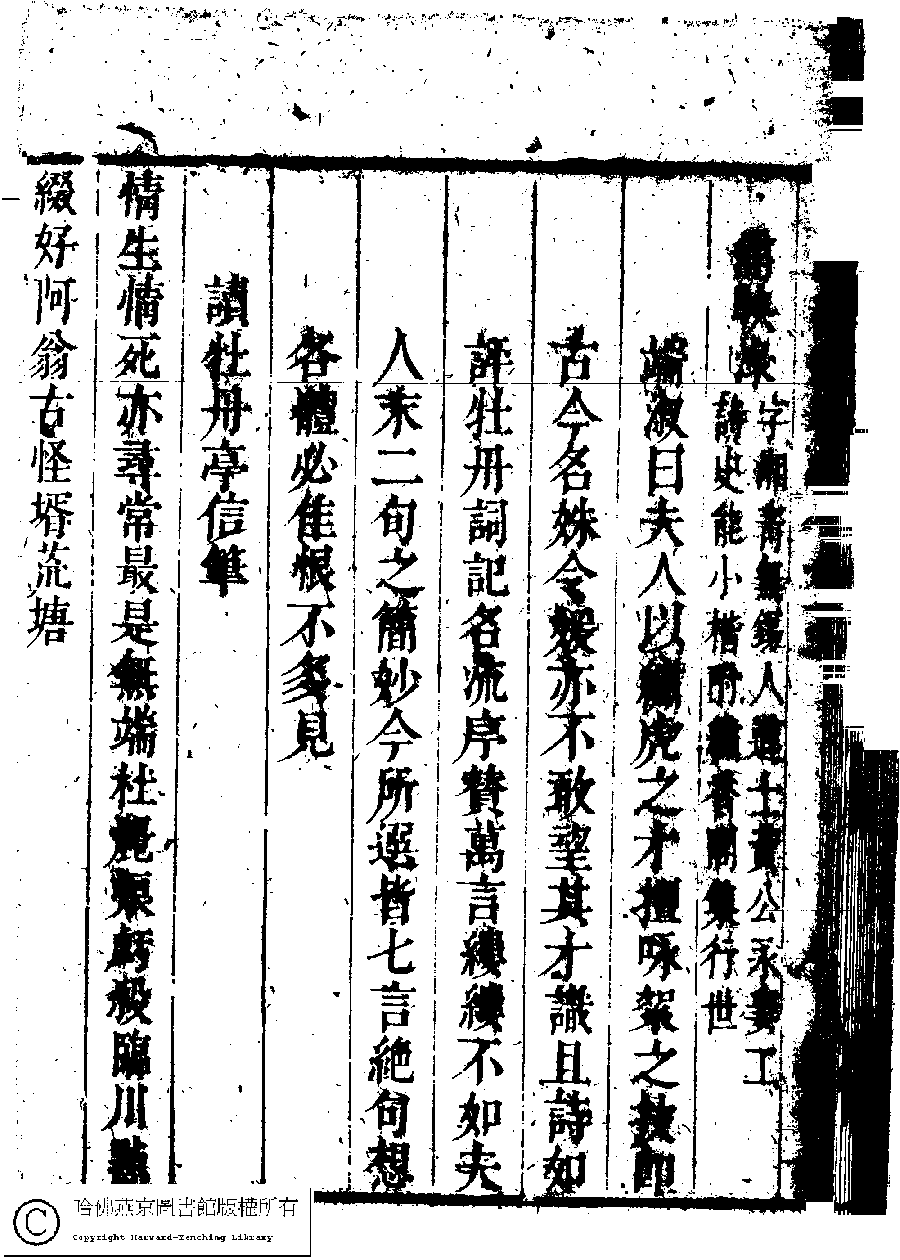 映淥
字湘青無錫人進士黃公永妻工
詩史能小楷有繡香閣集行世
端淑曰夫人以繡虎之才擅咏絮之技即
古今名姝令媛亦不敢望其才識且詩如
評牡丹詞記名流序贊萬言縷縷不如夫
人末二句之簡妙今所選皆七言絕句想
各體必佳恨不多見
讀牡丹亭信筆
情生情死亦尋常最是無端杜麗娘虧殺臨川點
綴好阿翁古怪壻荒塘
哈佛燕京圖書館版權所有
Copyright Harvard-Yenching Library